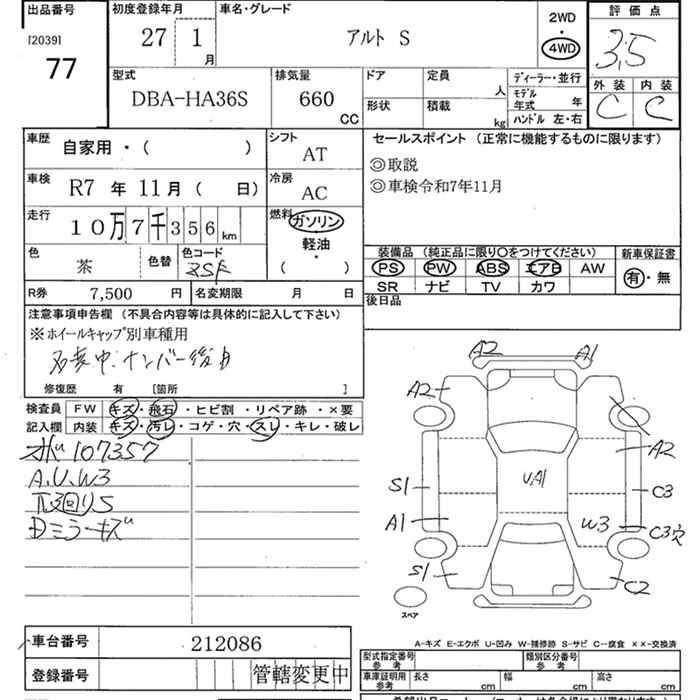 出品番号
[2039]
77
初度登録年月
27 1
月
車名・グレード
アルト S
2WD
・
4WD
評価点
3,5
外装 内装
C C
型式
DBA-HA36S
排気量
660
CC
ドア
形状
定員
人
積載
kg
ディーラー・並行
モデル
年式 年
ハンドル 左・右
車歴
自家用・( )
シフト
AT
車検
R7 年 11月 ( 日)
冷房
AC
走行
10万7千356km
燃料
ガソリン
・
軽油
・
( )
色
茶
色替
色コード
R券 7,500 円
名変期限 月 日
セールスポイント (正常に機能するものに限ります)
◎取説
◎車検令和7年11月
装備品 (純正品に限り○をつけてください)
PS PW ABS エアB AW
SR ナビ TV カワ
新車保証書
有・無
後日品
注意事項申告欄 (不具合内容等は具体的に記入して下さい)
※ホイールキャップ別車種用
名変中.ナンバー後日
修復歴 有 [箇所 ]
検査員
記入欄
FW キズ・飛石・ヒビ割・リペア跡・×要
内装 キズ・汚レ・コゲ・穴・スレ・キレ・破レ
107357
A.U.W3
下廻りS
Dミラーキズ
A2 A1
A2
A2
S1
UA1
C3
A1
W3
C3穴
S1
C2
スペア
A-キズ E-エクボ U-凹み W-補修跡 S-サビ C-腐食 ××-交換済
車台番号 212086
登録番号 管轄変更中
型式指定番号
参考
類別区分番号
参考
車庫証明用
参考
長さ cm
幅 cm
高さ cm